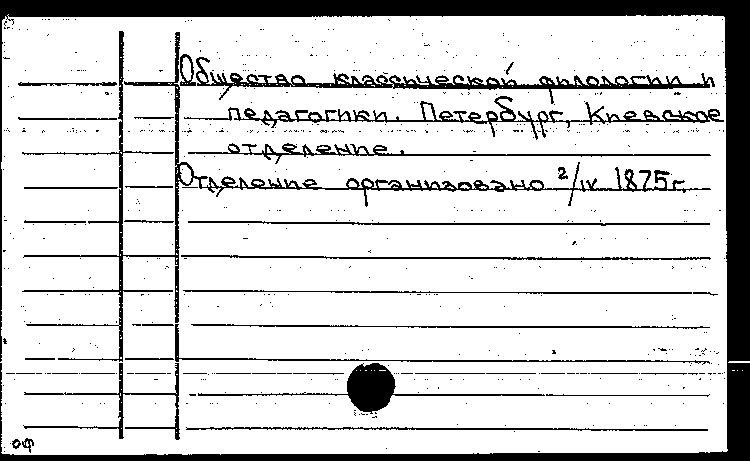 Общество классической филологии и
педагогики. Петербург, Киевское
отделение.
Отделение организовано 2/IV 1875г.
оф